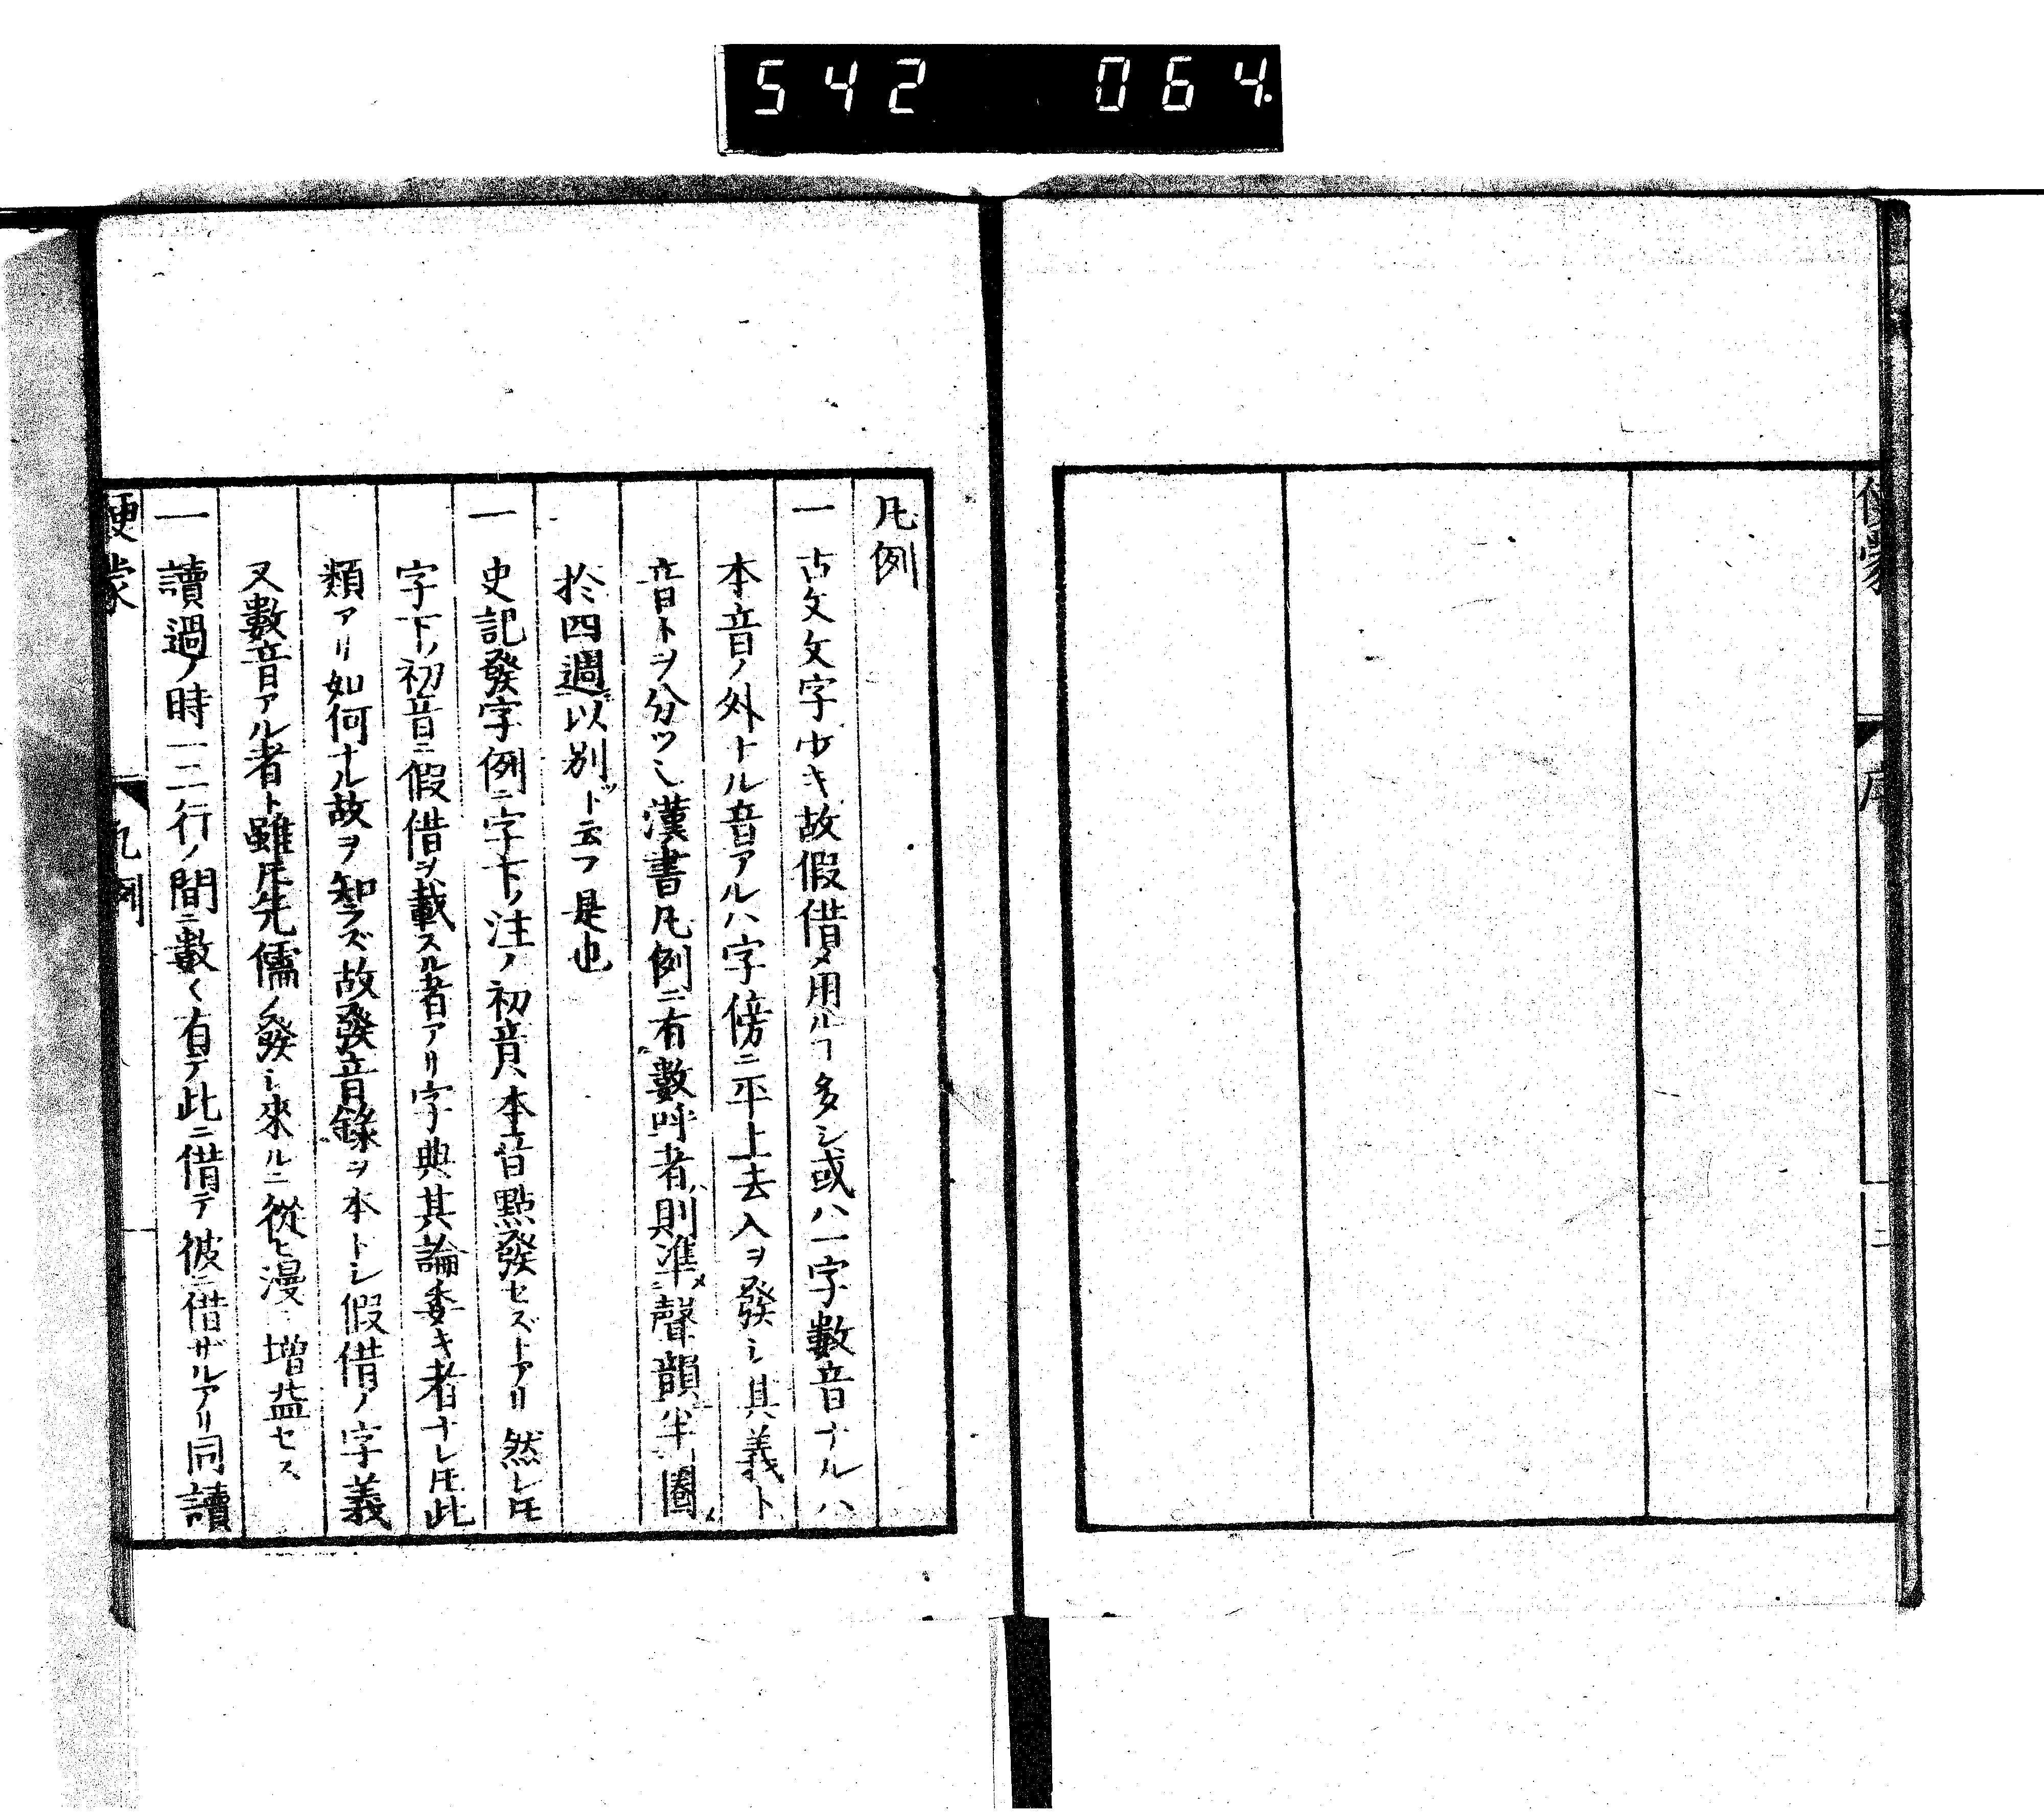 542 064.
便蒙
序
二
凡例
一 古文文字少キ故假借メ用ルヿ多シ或ハ一字數音ナルハ
本音ノ外トル音アルハ字傍ニ平上去入ヲ發シ其義ト
音トヲ分ツシ漢書凡例ニ有數呼者ハ則準メ聲韻ニ半圏メ
於四週以別ツト云フ是也
一 史記發字例ニ字下ノ注ノ初音ハ本音點發セズトアリ然レ𪜈
字下ノ初音ニ假借ヲ載スル者アリ字典其論委キ者ナレ𪜈此
類アリ如何ナル故ヲ知ラズ故發音錄ヲ本トシ假借ノ字義
又數音アル者ト雖𪜈先儒ノ發シ來ルニ從ヒ漫ニ増益セス
一 讀過ノ時一二行ノ間ニ數〱有テ此ニ借テ彼ニ借ザルアリ同讀
便蒙
凡例